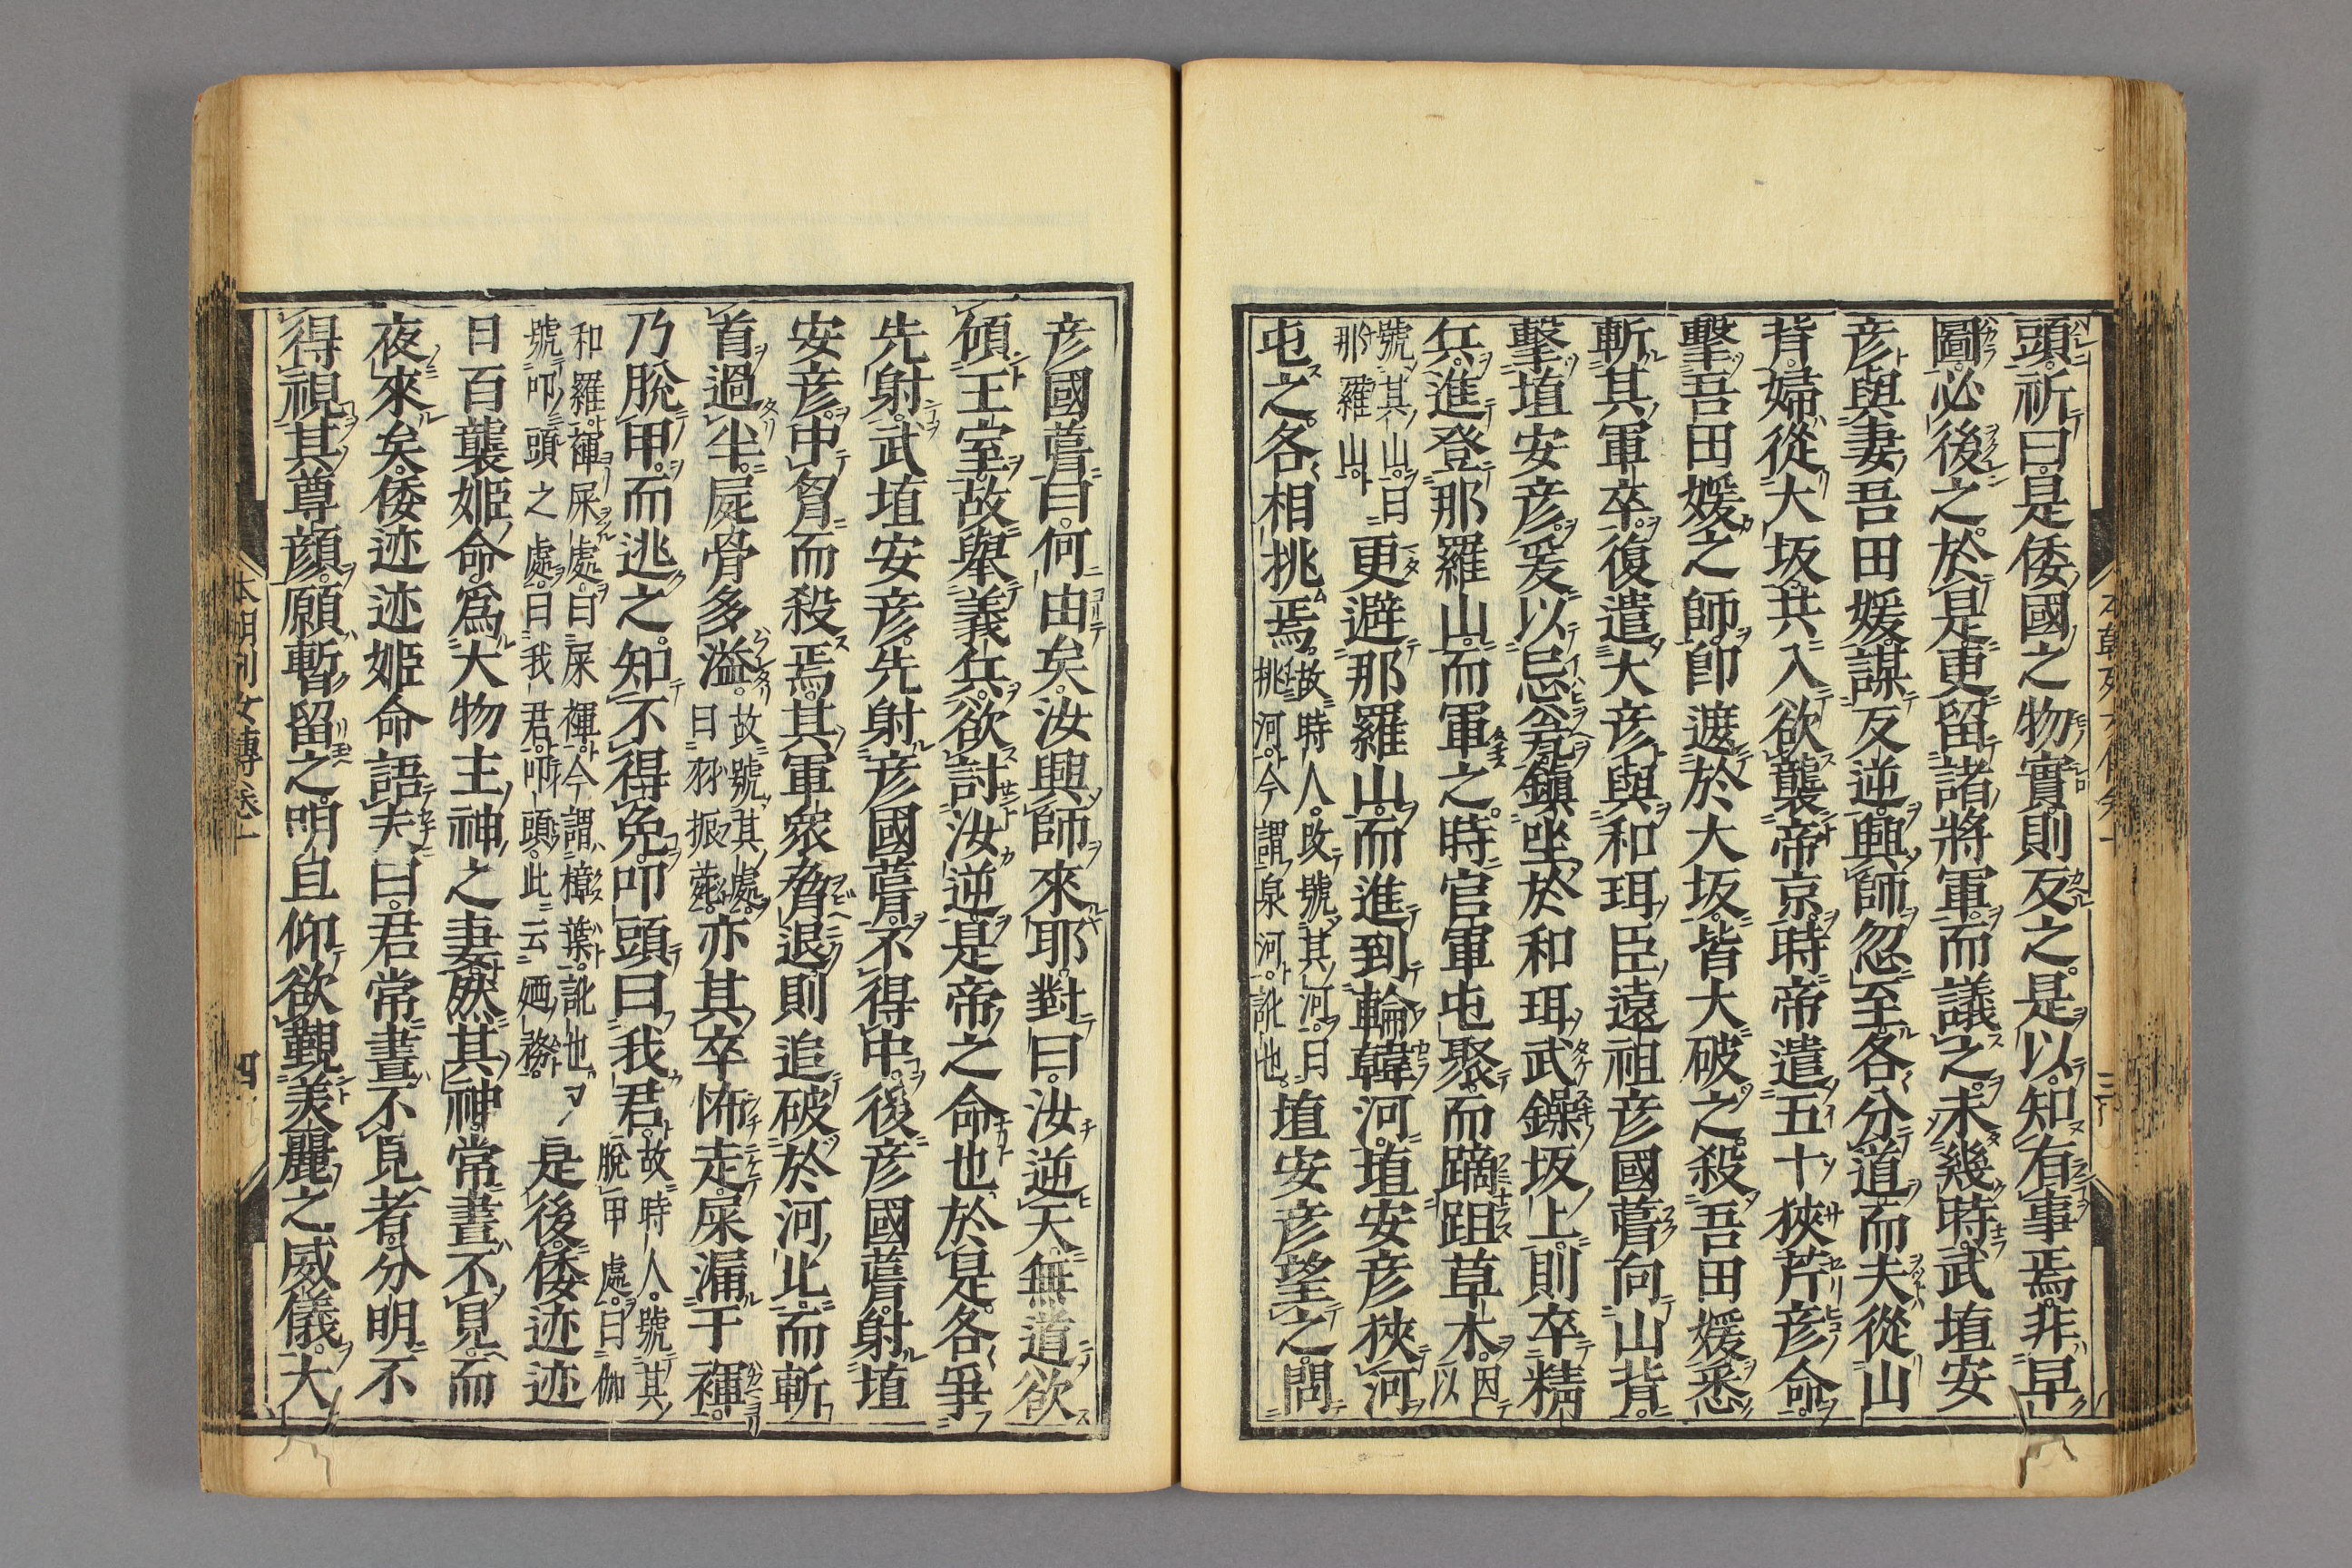 頭祈曰是倭國之物實則反之是以知有事焉非早
圖必後之於是更留諸將軍而議之未幾時武埴安
彥與妻吾田媛謀反逆興師忽至各分道而夫從山
背婦從大坂共入欲襲帝京時帝遣五十狹芹彥命
擊吾田媛之師卽遮於大坂皆大破之殺吾田媛悉
斬其軍卒復遣大彥與和珥臣遠祖彥國葺向山背
擊埴安彥爰以忌瓮鎮坐於和珥武鐰坂上則卒精
兵進登那羅山而軍之時官軍屯聚而蹢跙草木因以
號其山曰那羅山更避那羅山而進到輪韓河埴安彥挾河
屯之各相挑焉故時人改號其河曰挑河今謂泉河訛也埴安彥望之問
彥國葺曰何由矣汝興師來耶對曰汝逆天無道欲
傾王室故舉義兵欲討汝逆是帝之命也於是各爭
先射武埴安彥先射彥國葺不得中後彥國葺射埴
安彥中胷而殺焉其軍衆脅退則追破於河北而斬
首過半屍骨多溢故號其處曰羽振苑亦其卒怖走屎漏于褌
乃脫甲而逃之知不得免叩頭曰我君故時人號其脫甲處曰伽
和羅褌屎處曰屎褌今謂樟葉訛也號叩頭之處曰我君叩頭此云廼務是後倭迹迹
日百襲姬命爲大物主神之妻然其神常晝不見而
夜來矣倭迹迹姬命語夫曰君常晝不見者分明不
得視其尊顏願暫留之明旦仰欲觀美麗之威儀大
本朝列女傳卷十
四